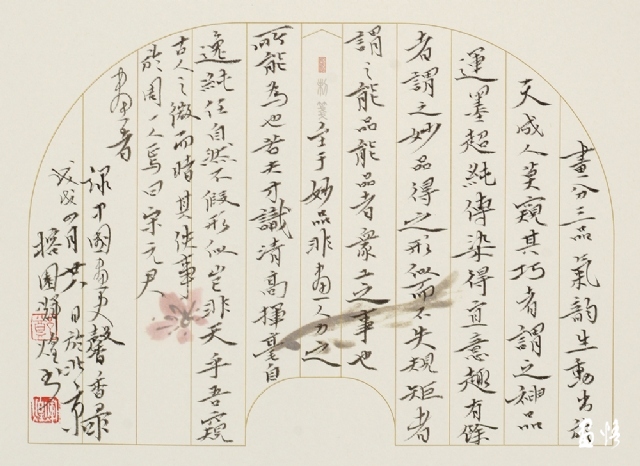 畫分三品氣韵生動出於
天成人莫窺其巧者謂之神品
運墨超純傳染得宜意趣有餘
者謂之妙品得之形似而不失規矩者
謂之能品能品者衆工之事也
至于妙品非畫人力之
所能為也若夫才識清高揮毫自
逸純任自然不假形似豈非天乎吾窺
古人之微而時其佚事
於周一人焉曰宋元君
畫者
錄中國畫史馨香录
戊戌四月廿八日於北京
榕園 煌书